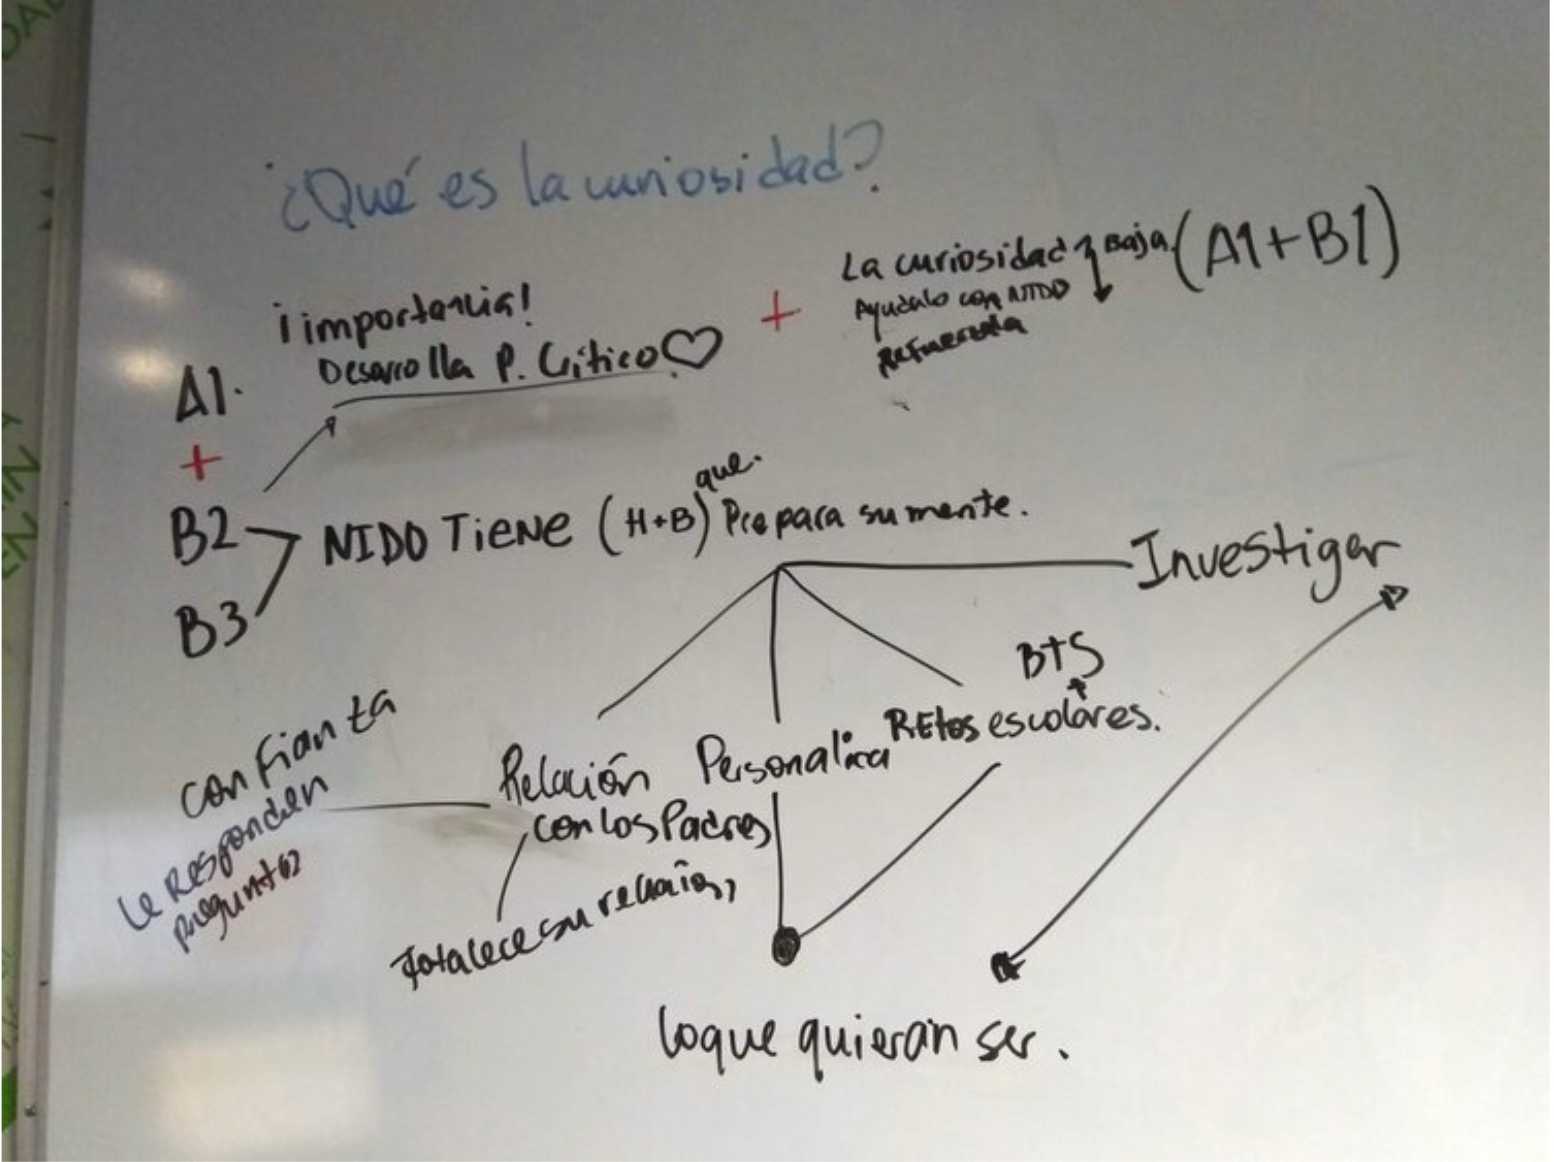 ¿Qué es la curiosidad?
La curiosidad Baja (A1+B1)
Ayudalo con NIDO
Refuerza
¡importancia!
Desarrolla P. Crítico
+
A1.
+
B2
B3
que.
NIDO TIENE (H+B) Prepara su mente.
Investigar
BTS
+
Retos escolares.
confianza
Le Responden
preguntas
Relación
con los Padres
Personaliza
fortalece su relación,
lo que quieran ser.